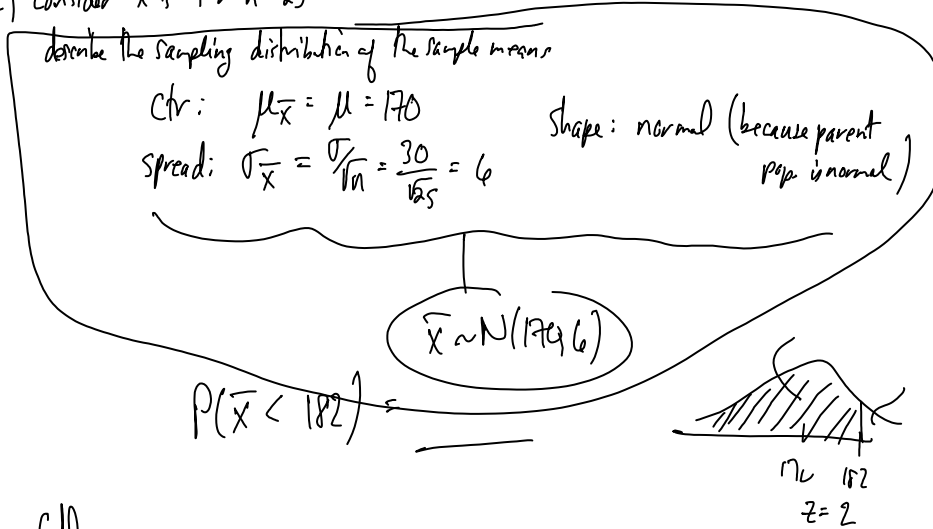 consider x̄'s
describe the sampling distribution of the sample means
ctr: μx̄ = μ = 170
spread: σx̄ = σ/√n = 30/√25 = 6
shape: normal (because parent pop. is normal)
x̄ ~ N(170, 6)
P(x̄ < 182) =
170 182
z = 2